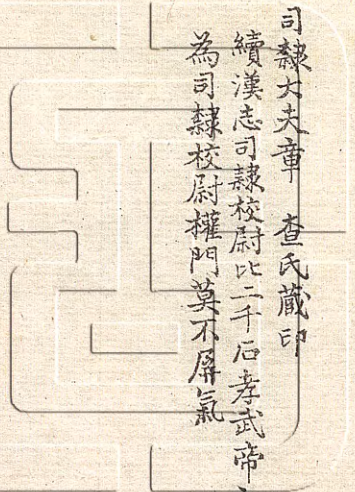 司隸大夫章　查氏藏印
續漢志司隸校尉比二千石孝武帝
為司隸校尉權門莫不屏氣